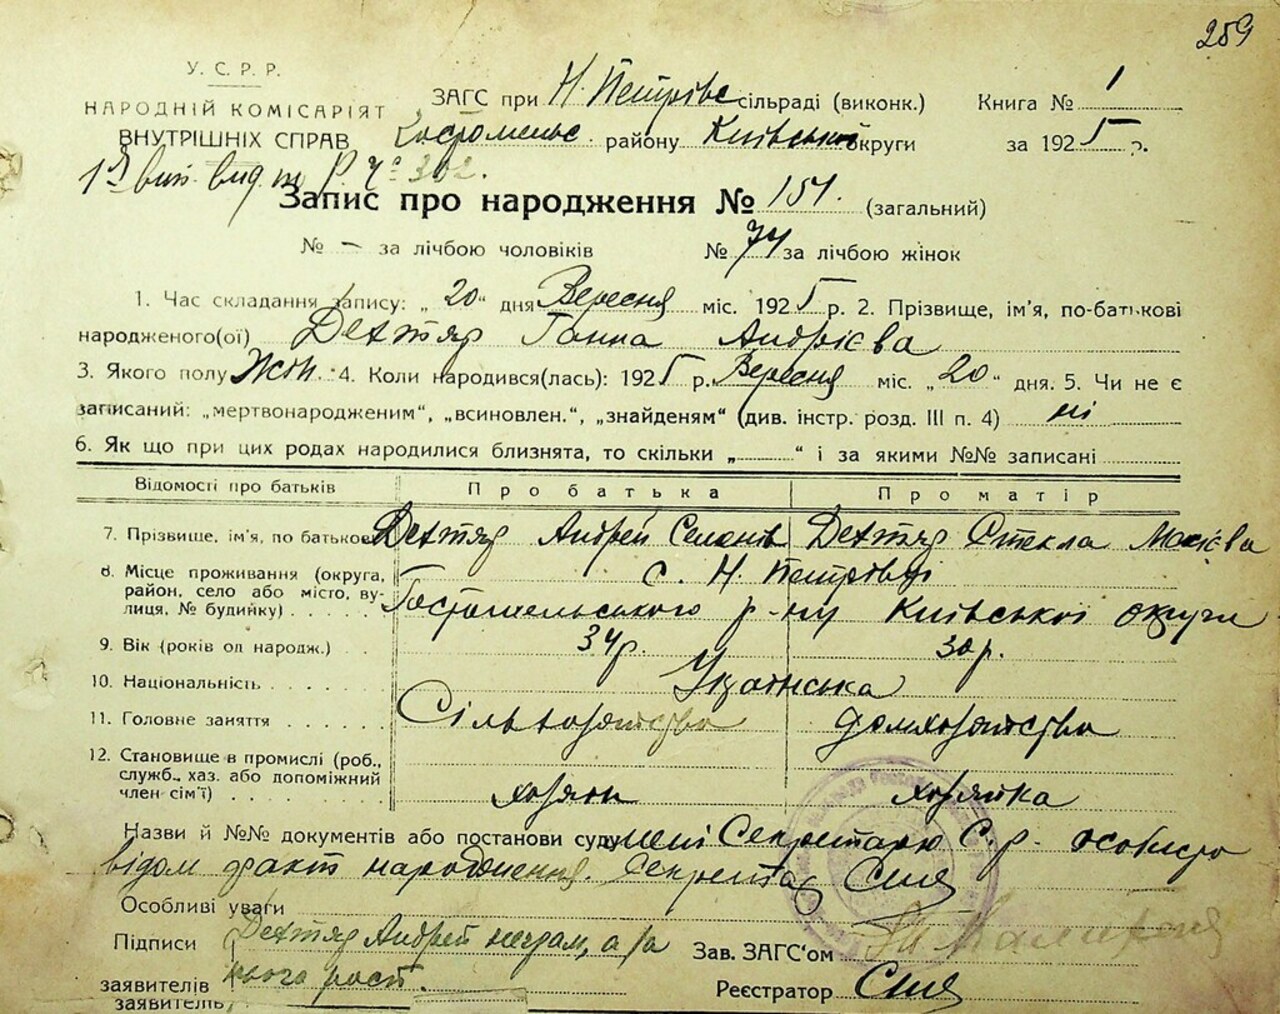 259
У. С. Р. Р.
НАРОДНІЙ КОМІСАРІЯТ
ВНУТРІШНІХ СПРАВ
ЗАГС при Н. Петрівс сільраді (виконк.) Книга № 1
Гостомельс. району Київської округи за 1925 р.
302.
Запис про народження № 151. (загальний)
№ – за лічбою чоловіків № 74 за лічбою жінок
1. Час складання запису: „20“ дня Вересня міс. 1925 р. 2. Прізвище, ім'я, по-батькові
народженого(ої) Дехтяр Ганна Андрієва
3. Якого полу Жін. 4. Коли народився(лась): 1925 р. Вересня міс. „20“ дня. 5. Чи не є
записаний: „мертвонародженим“, „всиновлен.“, „знайденям“ (див. інстр. розд. III п. 4) ні
6. Як що при цих родах народилися близнята, то скільки „ “ і за якими №№ записані
Відомості про батьків Про батька Про матір
7. Прізвище, ім'я, по батькові Дехтяр Андрей Семенів Дехтяр Стекла
8. Місце проживання (округа, с. Н. Петрівці
район, село або місто, ву-
лиця, № будинку) Гостомельського р-ну Київської округи
9. Вік (років од народж.) 34р. 30р.
10. Національність Українська
11. Головне заняття Сільхозяйство домхозяйство
12. Становище в промислі (роб.,
служб., хаз. або допоміжний
член сім'ї) хозяин хозяйка
Назви й №№ документів або постанови суду мені Секретарю С.р. особисто
відом факт народження. Секретар
Особливі уваги
Підписи Дехтяр Андрей неграм, а за
заявителів нього рост.
Зав. ЗАГС'ом
Реєстратор
заявитель,